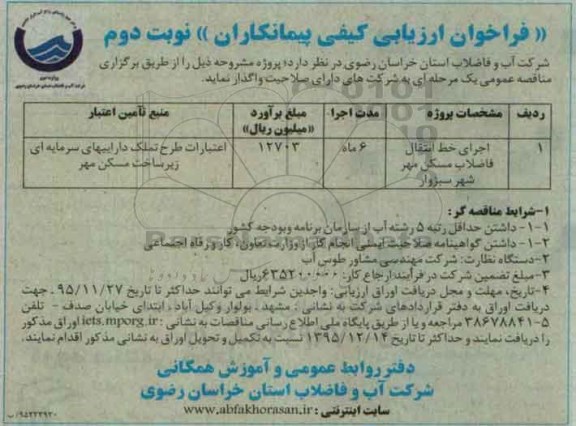 « فراخوان ارزیابی کیفی پیمانکاران » نوبت دوم
شرکت آب و فاضلاب استان خراسان رضوی در نظر دارد؛ پروژه مشروحه ذیل را از طریق برگزاری
مناقصه عمومی یک مرحله ای به شرکت های دارای صلاحیت واگذار نماید.
ردیف مشخصات پروژه مدت اجرا مبلغ برآورد «میلیون ریال» منبع تأمین اعتبار
۱ اجرای خط انتقال ۶ ماه ۱۲۷۰۳ اعتبارات طرح تملک داراییهای سرمایه ای
فاضلاب مسکن مهر زیرساخت مسکن مهر
شهر سبزوار
۱-شرایط مناقصه گر:
۱-۱- داشتن حداقل رتبه ۵ رشته آب از سازمان برنامه وبودجه کشور
۱-۲- داشتن گواهینامه صلاحیت ایمنی انجام کار از وزارت تعاون، کار و رفاه اجتماعی
۲-دستگاه نظارت: شرکت مهندسی مشاور طوس آب
۳-مبلغ تضمین شرکت در فرآیند ارجاع کار: ۶۳۵۲۰۰۰۰۰ریال
۴-تاریخ، مهلت و محل دریافت اوراق ارزیابی: واجدین شرایط می توانند حداکثر تا تاریخ ۹۵/۱۱/۲۷ . جهت
دریافت اوراق به دفتر قراردادهای شرکت به نشانی : مشهد ـ بولوار وکیل آباد ، ابتدای خیابان صدف - تلفن
۵-۳۸۶۷۸۸۴۱ مراجعه و یا از طریق پایگاه ملی اطلاع رسانی مناقصات به نشانی : iets.mporg.ir اوراق مذکور
را دریافت نمایند و حداکثر تا تاریخ ۱۳۹۵/۱۲/۱۴ نسبت به تکمیل و تحویل اوراق به نشانی مذکور اقدام نمایند.
دفتر روابط عمومی و آموزش همگانی
شرکت آب و فاضلاب استان خراسان رضوی
سایت اینترنتی : www.abfakhorasan.ir
۹۵۲۲۳۹۲۰/ب